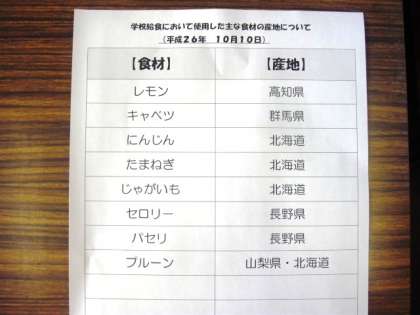 学校給食において使用した主な食材の産地について
（平成２６年　１０月１０日）
【食材】 【産地】
レモン 高知県
キャベツ 群馬県
にんじん 北海道
たまねぎ 北海道
じゃがいも 北海道
セロリー 長野県
パセリ 長野県
プルーン 山梨県・北海道